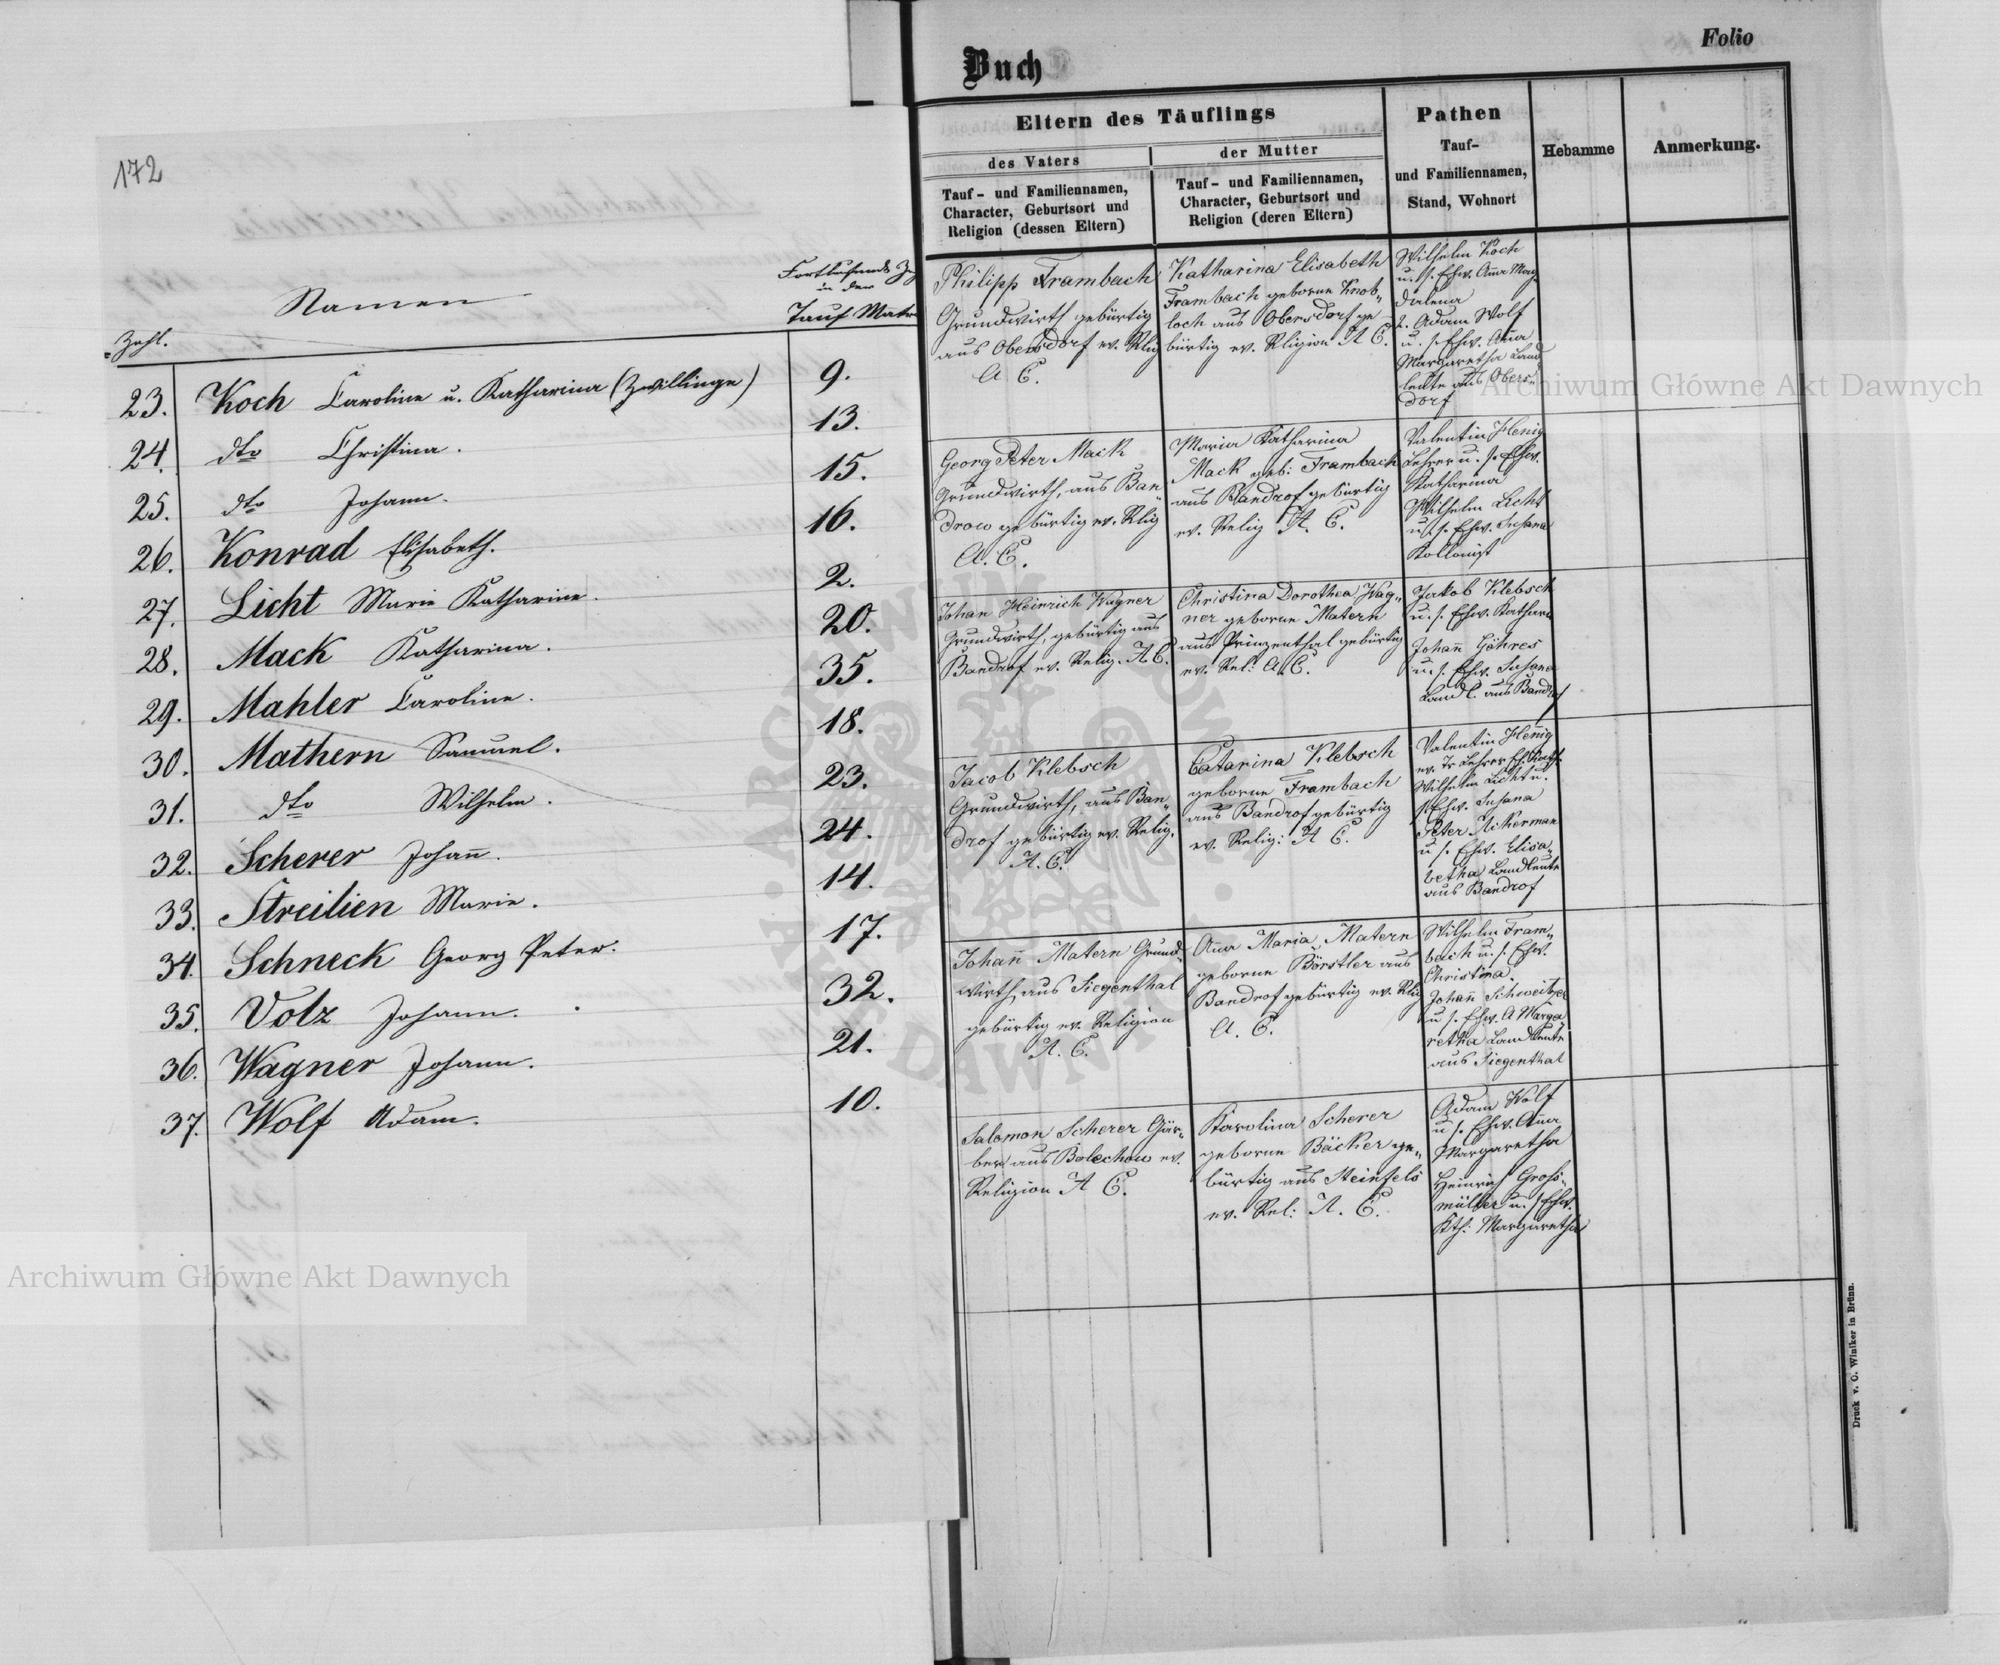 172
Zahl.
Namen
Fortlaufende Z
in der
Tauf Matr
23. Koch Caroline u. Katharina (Zwillinge) 9.
24. dto Christina. 13.
25. dto Johann. 15.
26. Konrad Elisabeth. 16.
27. Licht Marie Katharine. 2.
28. Mack Katharina. 20.
29. Mahler Caroline. 35.
30. Mathern Samuel. 18.
31. dto Wilhelm. 23.
32. Scherer Johañ. 24.
33. Streilien Marie. 14.
34. Schneck Georg Peter. 17.
35. Volz Johann. 32.
36. Wagner Johann. 21.
37. Wolf Adam. 10.
Buch
Folio
Eltern des Täuflings
des Vaters
Tauf- und Familiennamen,
Character, Geburtsort und
Religion (dessen Eltern)
der Mutter
Tauf- und Familiennamen,
Character, Geburtsort und
Religion (deren Eltern)
Pathen
Tauf-
und Familiennamen,
Stand, Wohnort
Hebamme
Anmerkung.
Philipp Frambach
Grundwirth gebürtig
aus Obersdorf ev. Rlig
A C.
Katharina Elisabeth
Frambach geborne Knob„
loch aus Obersdorf ge
bürtig ev. Rligion A C.
Wilhelm Koch
u. s. Ehw. Aña Mag„
dalena
2. Adam Wolf
u. s. Ehw. Aña
Margaretha Land
leute aus Obers„
dorf
Georg Peter Mack
Grundwirth, aus Ban„
drow gebürtig ev. Rlig
A. C.
Maria Katharina
Mack geb: Frambach
aus Bandrof gebürtig
ev. Relig A. C.
Valentin Henig
Lehrer u. s. Ehw.
Katharina
Wilhelm Licht
u. s. Ehw. Susana
Kollonist
Johan Heinrich Wagner
Grundwirth, gebürtig aus
Bandrof ev. Relig. A C.
Christina Dorothea Wag„
ner geborne Matern
aus Prinzenthal gebürtig
ev. Rel: A. C.
Jakob Klebsch
u. s. Ehw. Kathari
Johañ Göhres
u. s. Ehw. Susana
Landl. aus Bandrof
Jacob Klebsch
Grundwirth, aus Ban„
drof gebürtig ev. Relig.
A. C.
Catarina Klebsch
geborne Frambach
aus Bandrof gebürtig
ev. Relig: A C.
Valentin Heñig
ev. Lehrer
Wilhelm Licht u.
s. Ehw. Susana
Peter Ackerman
u s. Ehw. Elisa„
betha Landleute
aus Bandrof
Johañ Matern Grund„
wirth aus Siegenthal
gebürtig ev. Religion
A. C.
Aña Maria Matern
geborne Börstler aus
Bandrof gebürtig ev. Rlig
A. C.
Wilhelm Fram„
bach u. s. Ehw.
Christina.
Johañ Schweitzer
u s. Ehw. A Marga
retha Landleute
aus Siegenthal
Salomon Scherer Gär„
ber aus Bolechow ev.
Religion A C.
Karolina Scherer
geborne Bäcker ge„
bürtig aus Steinfels
ev. Rel: A. C.
Adam Wolf
u s. Ehw. Aña
Margaretha
Heinrich Groß„
müller u. s Ehw.
Kth: Margaretha
Druck v. C. Winiker in Brünn.
Archiwum Główne Akt Dawnych
Archiwum Główne Akt Dawnych